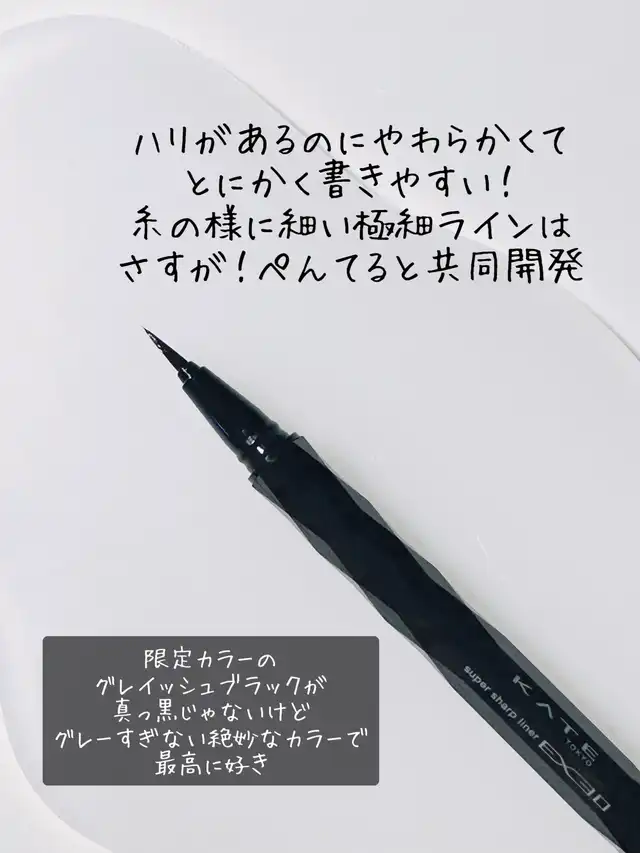 ハリがあるのにやわらかくて
とにかく書きやすい!
糸の様に細い極細ラインは
さすが!ぺんてると共同開発
KATE
TOKYO
super sharp liner EX3.0
限定カラーの
グレイッシュブラックが
真っ黒じゃないけど
グレーすぎない絶妙なカラーで
最高に好き